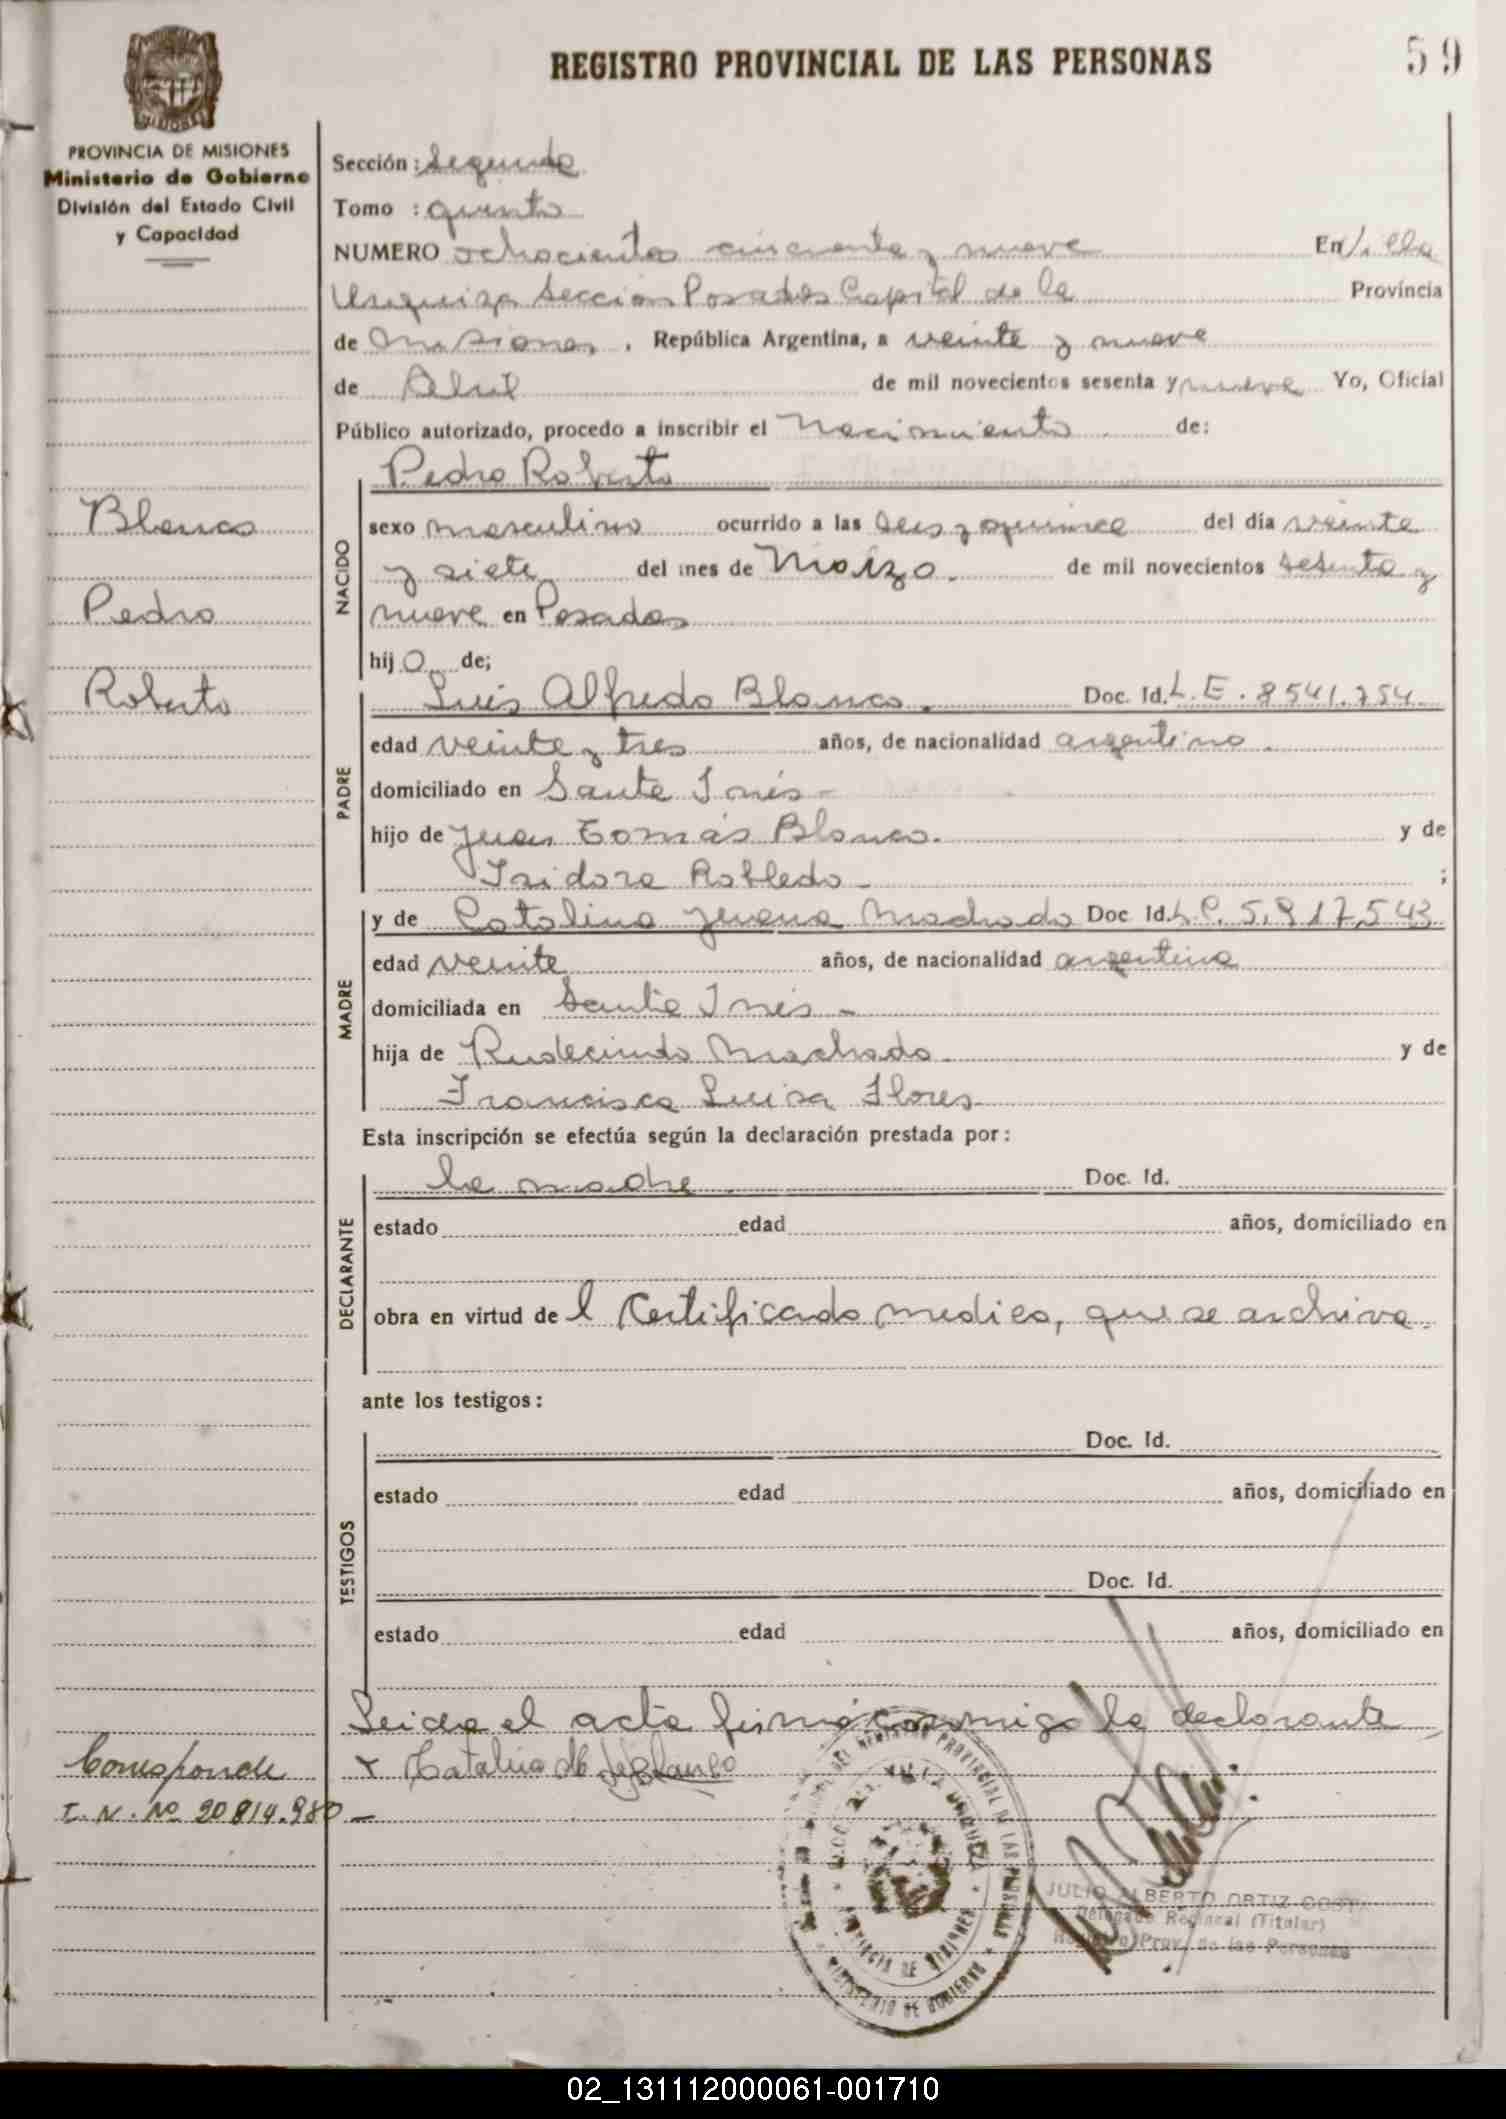 REGISTRO PROVINCIAL DE LAS PERSONAS
59
MISIONES
PROVINCIA DE MISIONES
Ministerio de Gobierno
División del Estado Civil
y Capacidad
Sección: Segunda
Tomo : quinto
NUMERO ochocientos cincuenta y nueve En Villa
Urquiza Sección Posadas Capital de la Provincia
de Misiones, República Argentina, a veinte y nueve
de Abril de mil novecientos sesenta y nueve Yo, Oficial
Público autorizado, procedo a inscribir el Nacimiento de:
Blanco
Pedro
Roberto
NACIDO
Pedro Roberto
sexo masculino ocurrido a las seis y quince del día veinte
y siete del mes de Marzo. de mil novecientos sesenta y
nueve en Posadas
hijo de;
PADRE
Luis Alfredo Blanco. Doc. Id. L.E. 8541.754.
edad veinte y tres años, de nacionalidad argentino.
domiciliado en Santa Inés -
hijo de Juan Tomás Blanco. y de
Isidora Robledo - ;
MADRE
y de Catalina Juana Machado Doc Id. L.C. 5.917.543
edad veinte años, de nacionalidad argentina
domiciliada en Santa Inés -
hija de Rudecindo Machado. y de
Francisca Luisa Flores
Esta inscripción se efectúa según la declaración prestada por:
DECLARANTE
la madre Doc. Id.
estado edad años, domiciliado en
obra en virtud del Certificado medico, que se archiva.
ante los testigos:
TESTIGOS
Doc. Id.
estado edad años, domiciliado en
Doc. Id.
estado edad años, domiciliado en
Leida el acta firmó conmigo la declarante
x Catalina M. de Blanco
Corresponde
I. N. Nº 20814.980 -
REGISTRO PROVINCIAL DE LAS PERSONAS
VILLA URQUIZA
PROVINCIA DE MISIONES
MINISTERIO DE GOBIERNO
JULIO ALBERTO ORTIZ COSTA
Delegado Regional (Titular)
Registro Prov. de las Personas
02_131112000061-001710